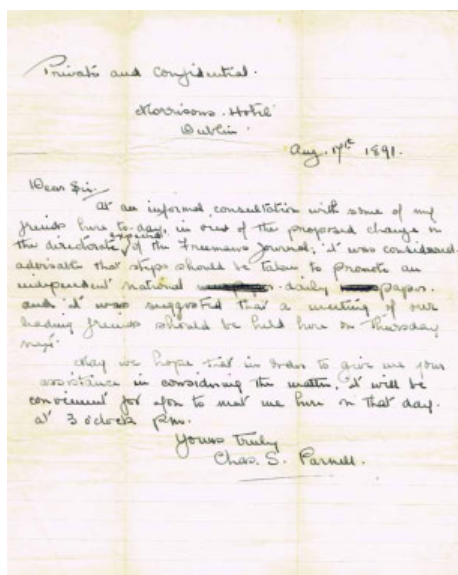 Private and Confidential.
Morrisons Hotel
Dublin
Aug. 17th 1891.
Dear Sir,
At an informal consultation with some of my
friends here to-day, in view of the proposed change in
the directorate of the Freemans Journal, it was considered
advisable that steps should be taken to promote an
independent national daily paper.
and it was suggested that a meeting of our
leading friends should be held here on Thursday
next.
May we hope that in order to give me your
assistance in considering the matter, it will be
convenient for you to meet me here on that day.
at 3 o'clock pm.
Yours Truly
Chas. S. Parnell.